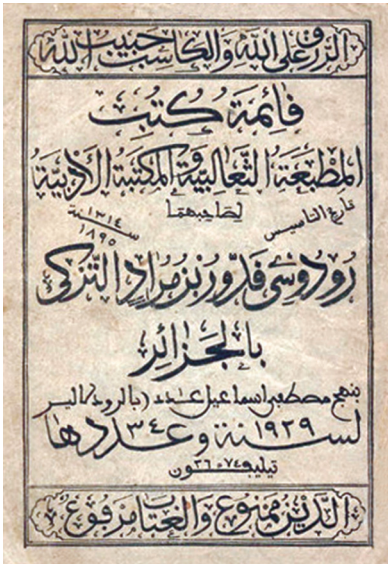 الرزق على الله والكاسب حبيب الله
قائمة كتب
المطبعة الثعالبية والمكتبة الأدبية
لصاحبهما
تاريخ التاسيس
سنة ١٣١٤
١٨٩٥
رودوسي قدور بن مراد التركي
بالجزائر
بنهج مصطفى اسماعيل عدد
لسنة ١٩٢٩ وعددها ٣٤
تيليفون ٧٤-٣٦
الدين ممنوع والعتاب مرفوع